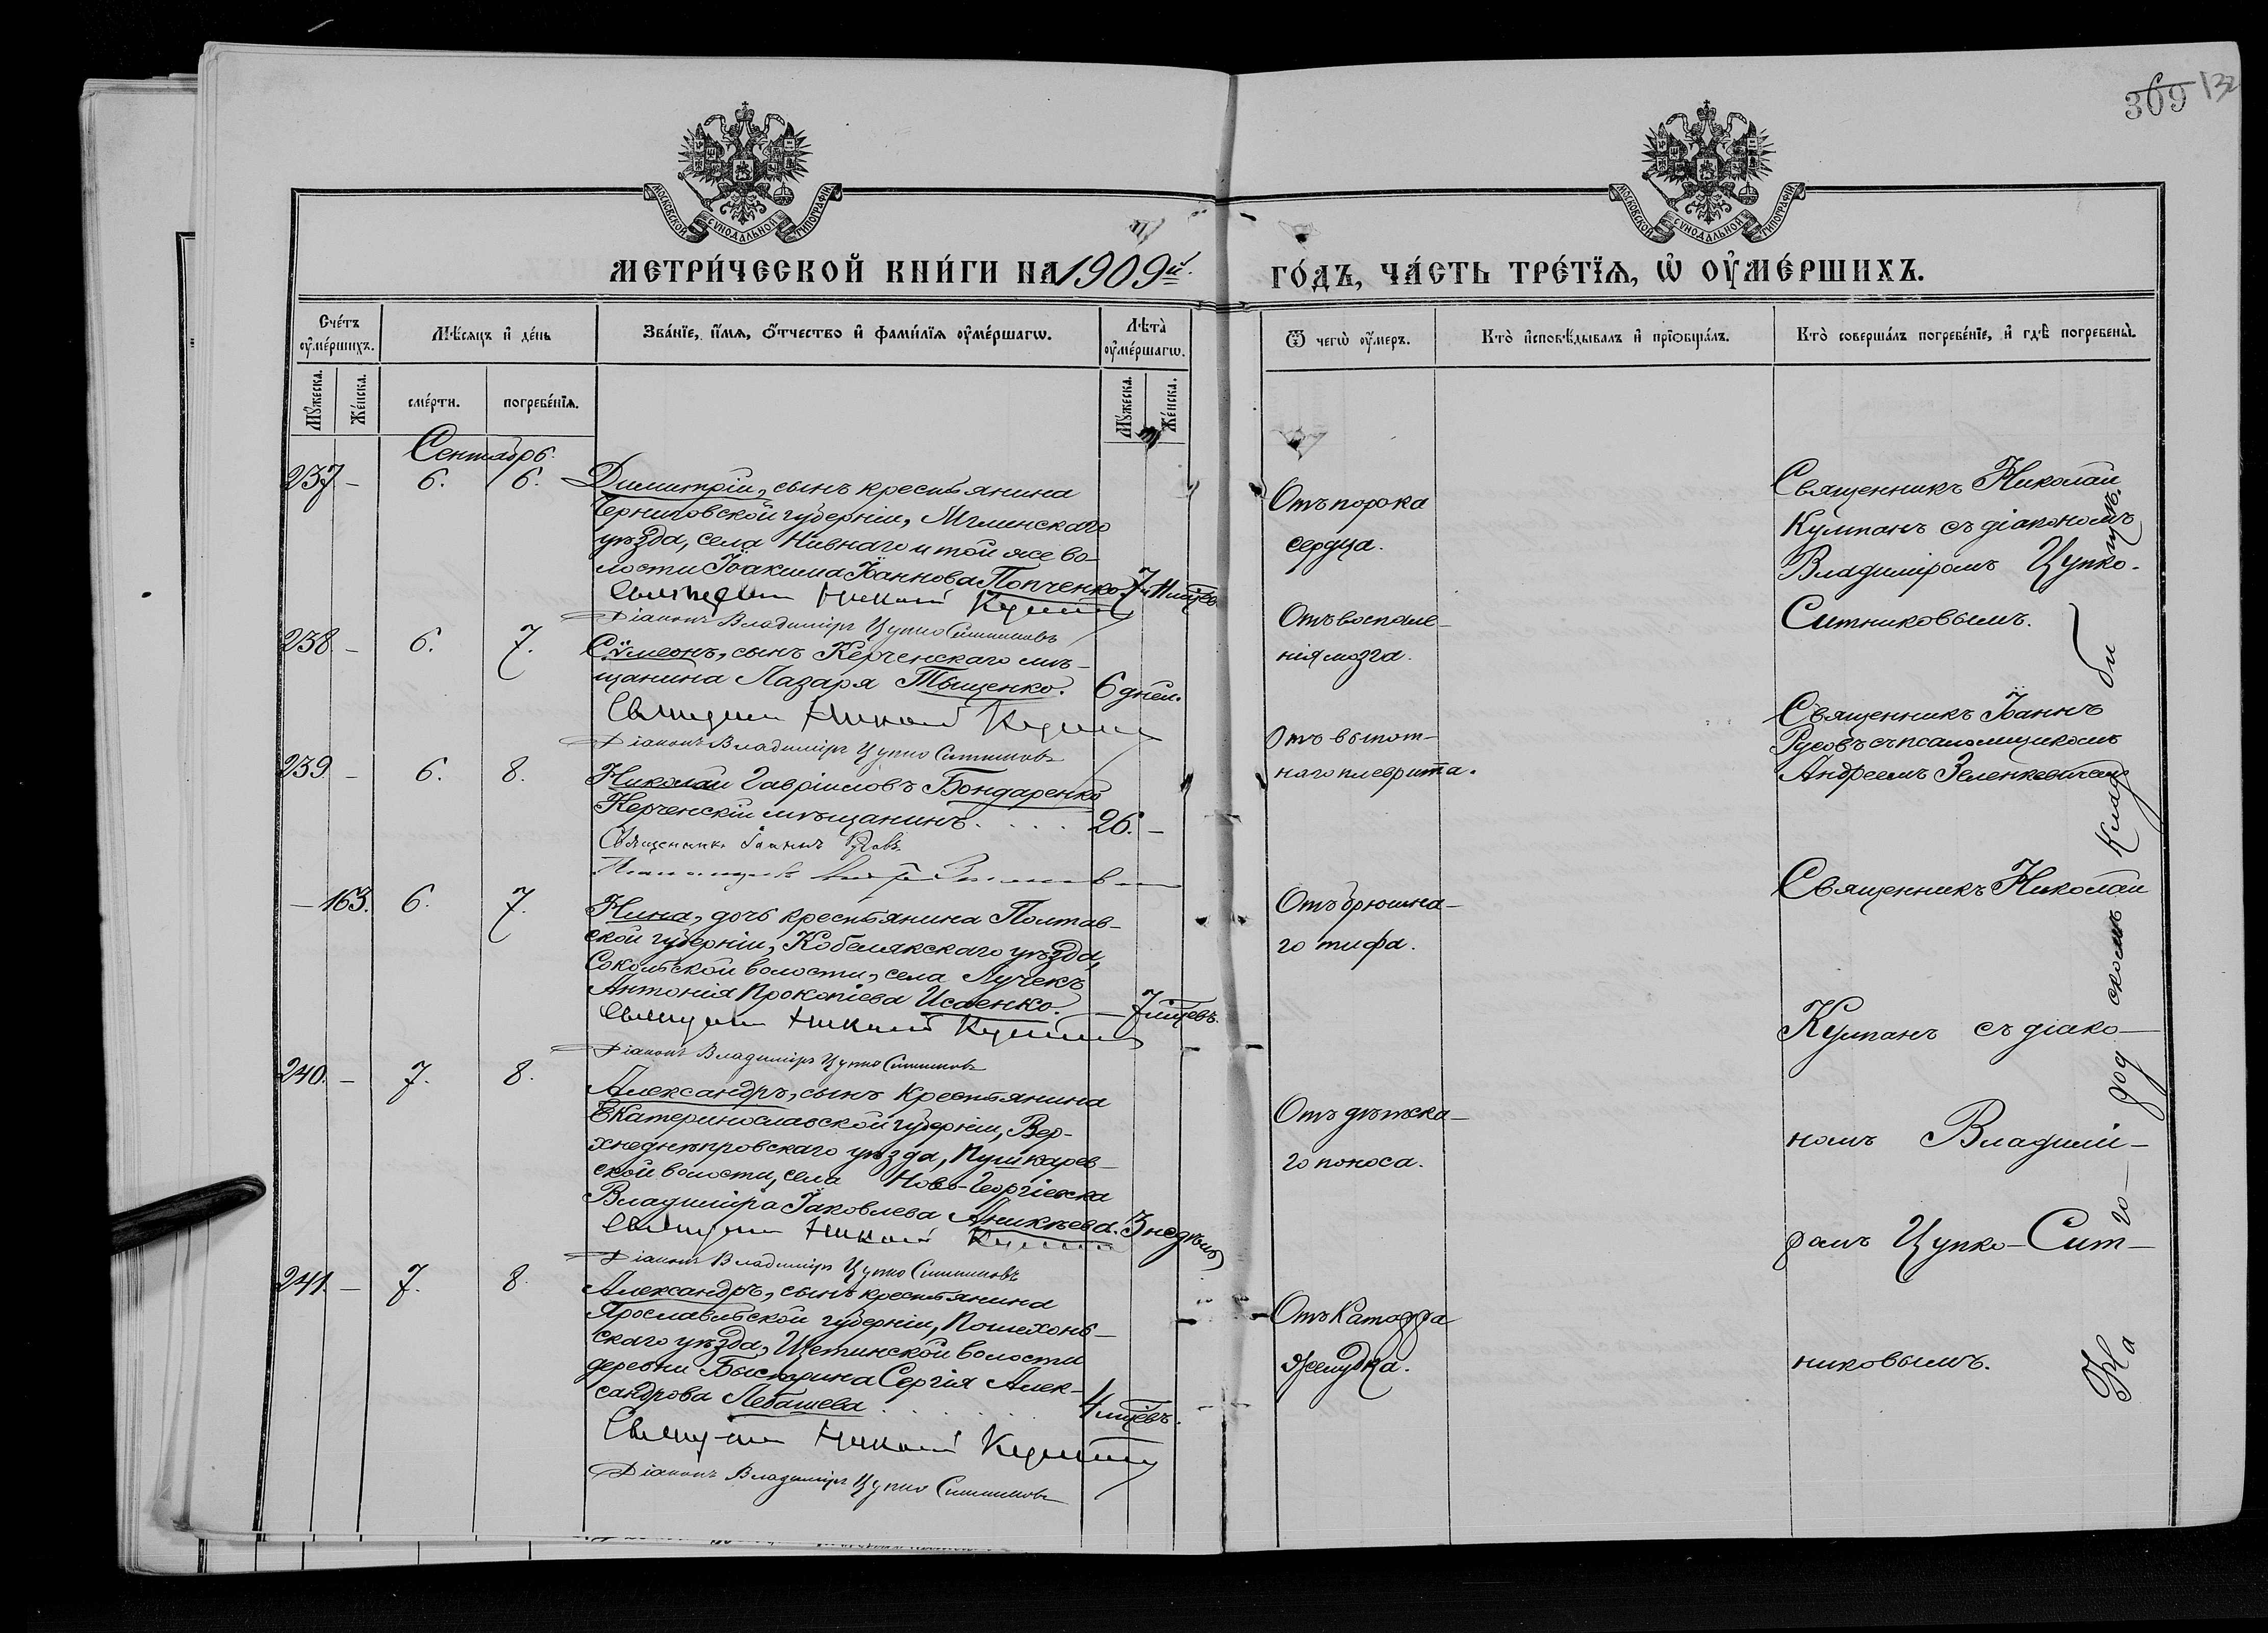 369 132
МОСКОВСКОЙ СѴНОДАЛЬНОЙ ТИПОГРАФІИ
МОСКОВСКОЙ СѴНОДАЛЬНОЙ ТИПОГРАФІИ
МЕТРИ́ЧЕСКОЙ КНИ́ГИ НА 1909й. ГО́ДЪ, ЧА́СТЬ ТРЕ́ТЇѦ, Ѡ҆ ОУ҆МЕ́РШИХЪ.
Сче́тъ оу҆ме́ршихъ.
Мѣ́сяцъ и҆ де́нь
Зва́нїе, и҆́мѧ, ѻ҆́тчество и҆ фами́лїѧ оу҆ме́ршагѡ.
Лѣта̀ оу҆ме́ршагѡ.
Ѿ чегѡ̀ оу҆́меръ.
Кто̀ и҆сповѣ́дывалъ и҆ прїѻбща́лъ.
Кто̀ соверша́лъ погребе́нїе, и҆ гдѣ̀ погребены̀.
Мꙋ́жеска.
Же́нска.
сме́рти.
погребе́нїѧ.
Мꙋ́жеска.
Же́нска.
Сентябрь.
237 – 6. 6. Димитрій, сынъ крестьянина
Черниговской губерніи, Мглинскаго
уѣзда, села Нивнаго и той же во-
лости Іоакима Іоаннова Попченко. 7 мцевъ
Священникъ Николай Кулпанъ
Діаконъ Владиміръ Цупко Ситниковъ
Отъ порока
сердца.
Священникъ Николай
Кулпанъ съ діакономъ
Владиміромъ Цупко-
Ситниковымъ.
238. – 6. 7. Сѵмеонъ, сынъ Керченскаго мѣ-
щанина Лазаря Тыщенко. 6 дней.
Священникъ Николай Кулпанъ
Діаконъ Владиміръ Цупко Ситниковъ
Отъ воспале-
нія мозга.
239 – 6. 8. Николай Гавріиловъ Бондаренко
Керченскій мѣщанинъ. . . . . 26. –
Священникъ Іоаннъ Русовъ
Отъ выпот-
наго плеврита.
Священникъ Іоаннъ
Русовъ съ псаломщикомъ
Андреемъ Зеленкевичемъ
– 163. 6. 7. Нина, дочь крестьянина Полтав-
ской губерніи, Кобелякскаго уѣзда,
Сокольской волости, села Лучекъ
Антонія Прокопіева Исаенко. – 7 мцевъ.
Священникъ Николай Кулпанъ
Діаконъ Владиміръ Цупко Ситниковъ
Отъ брюшна-
го тифа.
Священникъ Николай
Кулпанъ съ діако-
240. – 7. 8. Александръ, сынъ крестьянина
Екатеринославской губерніи, Вер-
хнеднѣпровскаго уѣзда, Пушкарев-
ской волости, села Ново-Георгіевка
Владиміра Іаковлева Аникѣева. 3 недѣли
Священникъ Николай Кулпанъ
Діаконъ Владиміръ Цупко Ситниковъ
Отъ дѣтска-
го поноса.
номъ Владимі-
ромъ Цупко-Сит-
241. – 7. 8. Александръ, сынъ крестьянина
Ярославльской губерніи, Пошехонь-
скаго уѣзда, Щетинской волости
деревни Быстрина Сергія Алек-
сандрова Лебашева . . . . . 4 мцевъ.
Священникъ Николай Кулпанъ
Діаконъ Владиміръ Цупко Ситниковъ
Отъ катарра
желудка.
никовымъ.
На го-
родскомъ кладби
щѣ.